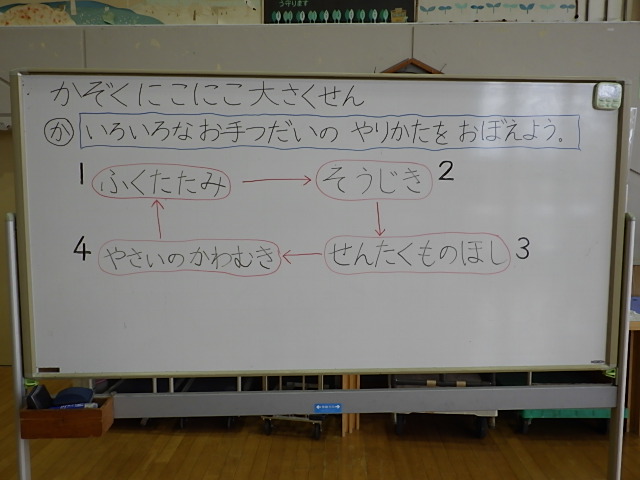 う守ります
かぞくにこにこ大さくせん
か いろいろなお手つだいの やりかたを おぼえよう。
1 ふくたたみ そうじき 2
4 やさいのかわむき せんたくものほし 3